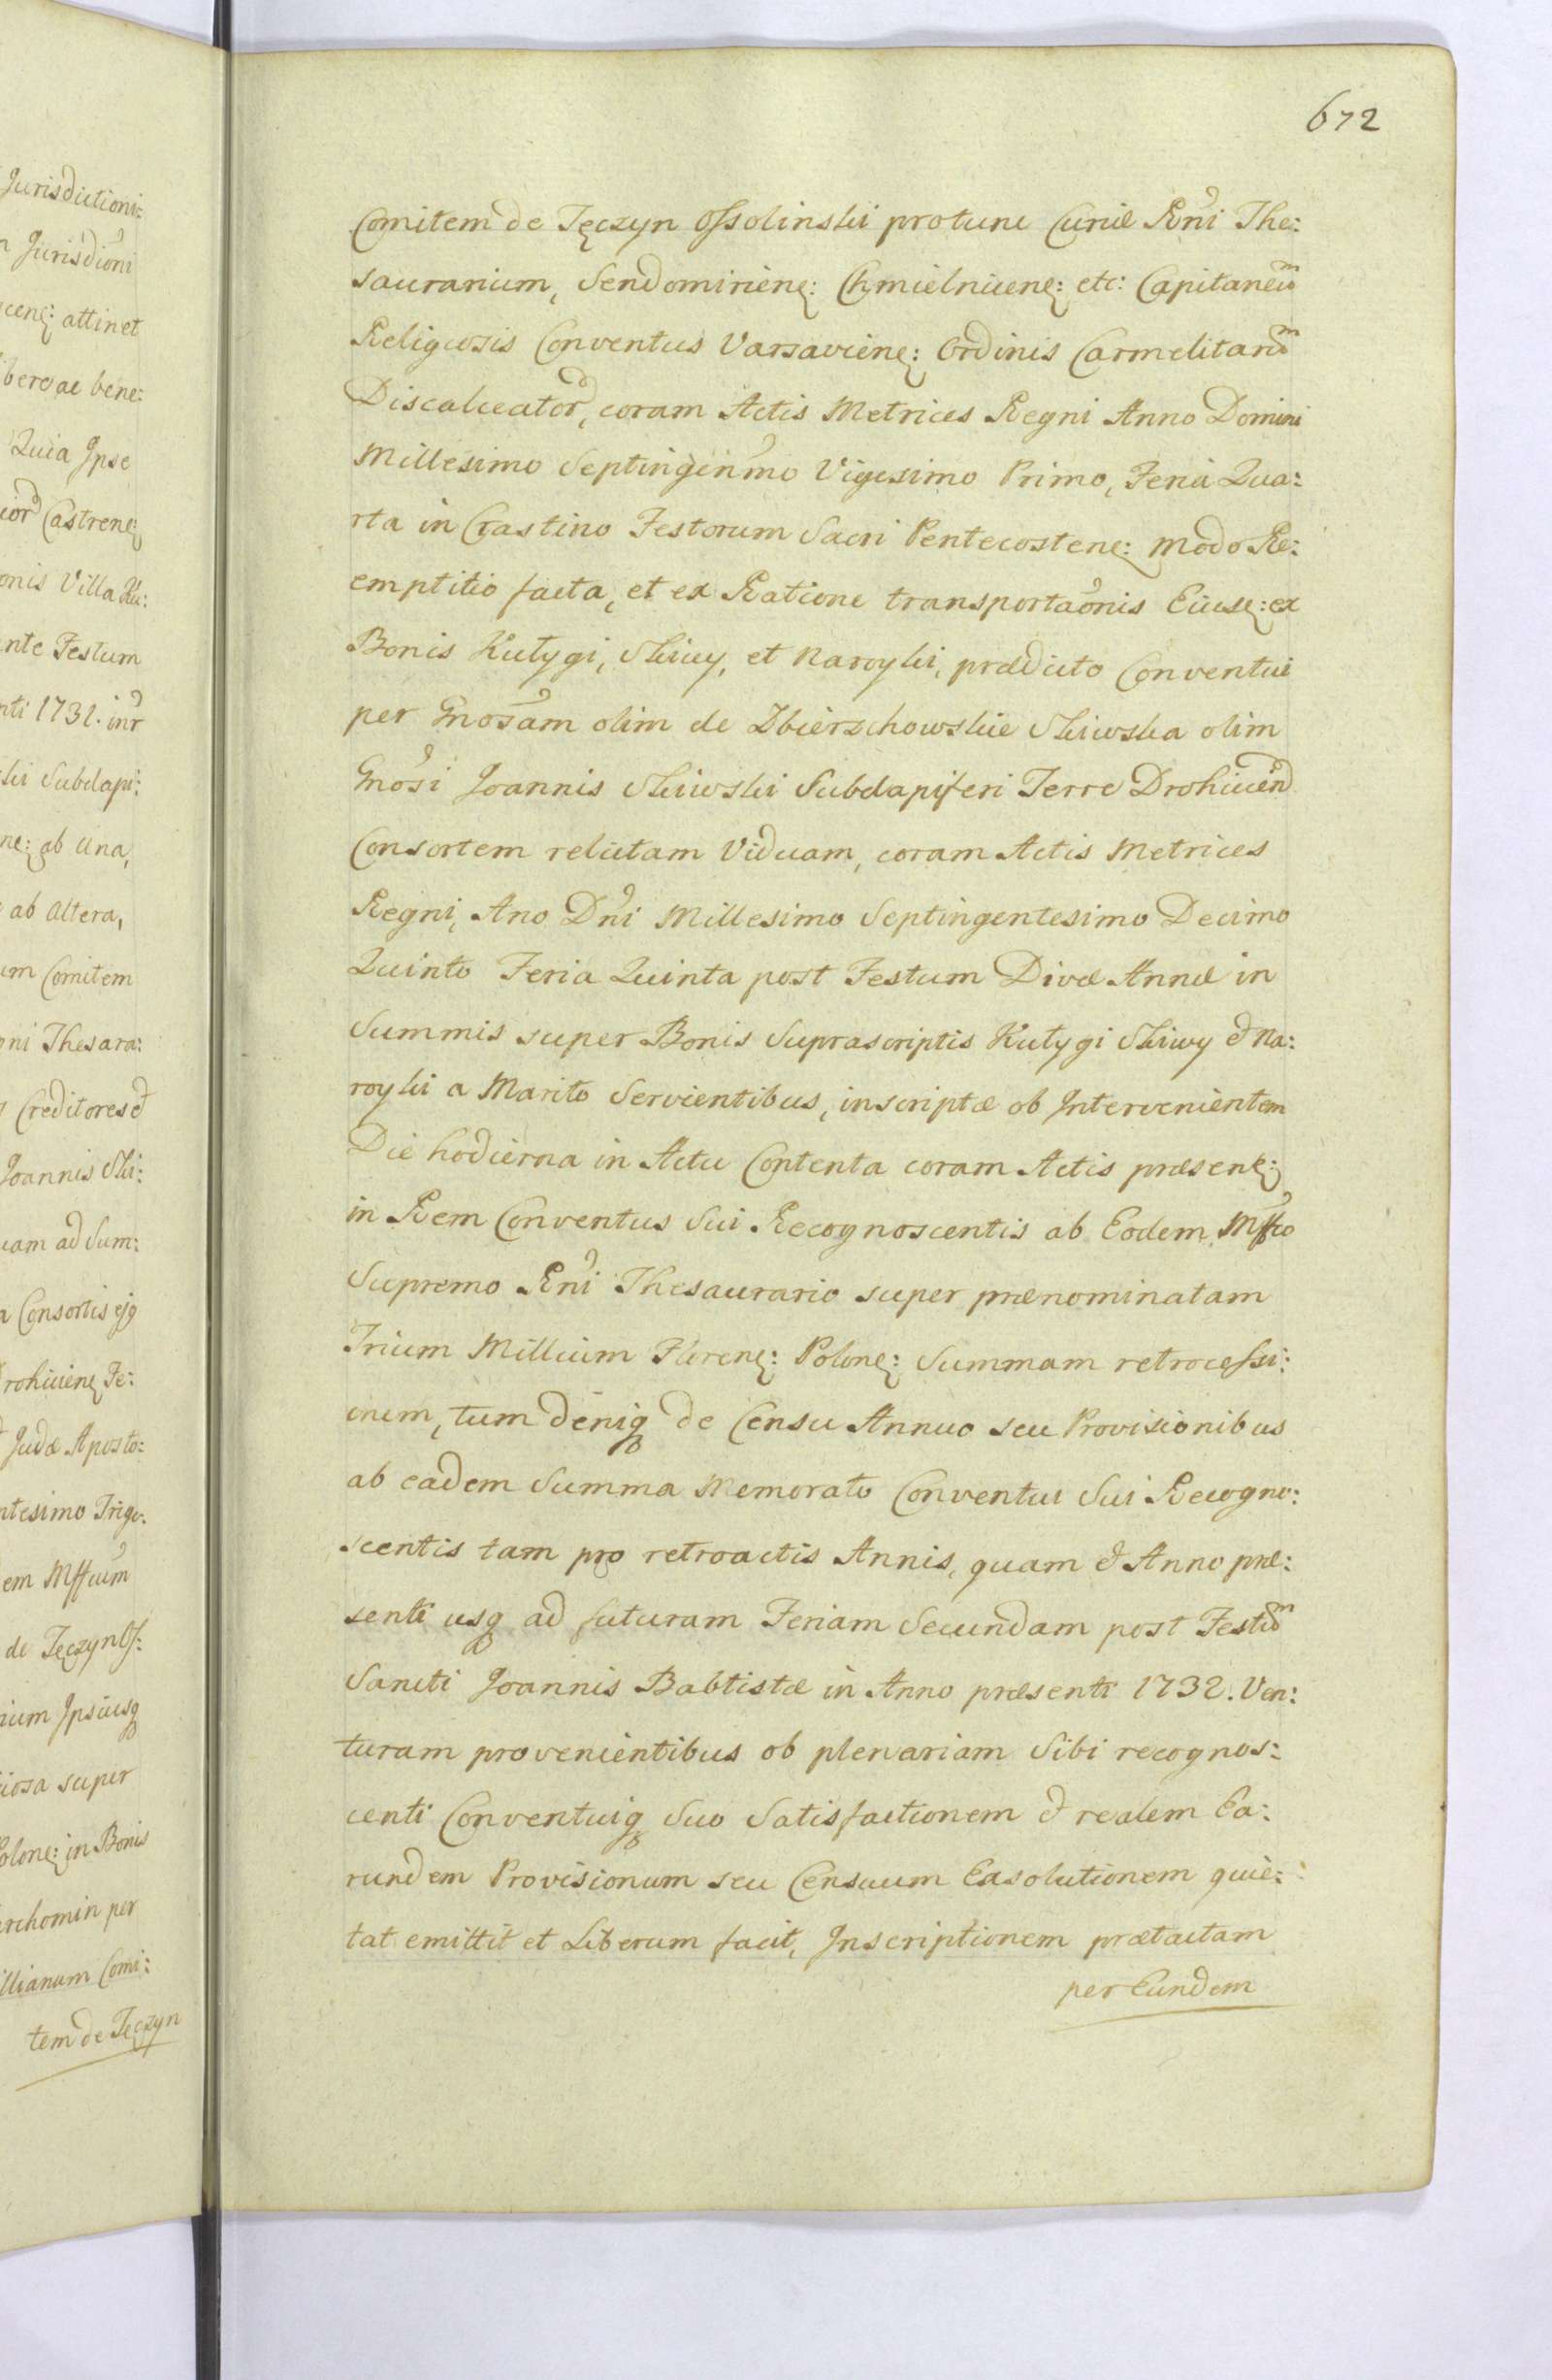 Jurisdictioni:
n Jurisdioni
cene: attinet
bere ac bene:
Quia Ipse
Castrene:
onis Villa
nte Festum
nti 1732. inr
ski Subdapi:
ne: ab Una,
ab Altera,
um Comitem
ni Thesara:
Creditores et
Joannis Ski:
uam ad Sum:
a Consortis ejg
rohicene Fe:
Judæ Aposto:
ntesimo Trige:
em Mffcum
de Tęczyn Os:
rium Ipsiusq
iosa super
olone: in Bonis
rchomin per
illianum Comi:
tem de Tęczyn
672
Comitem de Tęczyn Ossolinski protunc Curiæ Rni The:
saurarium, Sendomiriene: Chmielnicene: etc: Capitaneum
Religiosis Conventus Varsaviene: Ordinis Carmelitarum
Discalceator, coram Actis Metrices Regni Anno Domini
Millesimo Septingenmo Vigesimo Primo, Feria Qua:
rta in Crastino Festorum Sacri Pentecostene: modo Re:
emptitio facta, et ex Ratione transportaonis Eiuse: ex
Bonis Kutygi, Skiwy, et Naroyki, prædicto Conventui
per Gnosam olim de Zbierzchowskie Skiwska olim
Gnosi Joannis Skiwski Subdapiferi Terre Drohicen
Consortem relictam Viduam, coram Actis Metrices
Regni, Ano Dni Millesimo Septingentesimo Decimo
Quinto Feria Quinta post Festum Divæ Annæ in
Summis super Bonis Suprascriptis Kutygi Skiwy et Na:
royki a Marito Servientibus, inscriptæ ob Intervenientem
Die hodierna in Actu Contenta coram Actis præsene:
in Rem Conventus Sui Recognoscentis ab Eodem Mffco
Supremo Rni Thesaurario super prænominatam
Trium Millium Florene: Polone: Summam retrocessi:
onem, tum deniq de Censu Annuo seu Provisionibus
ab eadem Summa Memorato Conventui Sui Recogno:
scentis tam pro retroactis Annis, quam et Anno præ:
senti usq ad futuram Feriam Secundam post Festum
Sancti Joannis Babtistæ in Anno præsenti 1732. Ven:
turam provenientibus ob plenariam Sibi recognos:
centi Conventuiq Suo Satisfactionem et realem Ea:
rundem Provisionum seu Censuum Exsolutionem quie:
tat emittit et Liberum facit, Inscriptionem prætactam
per Eundem